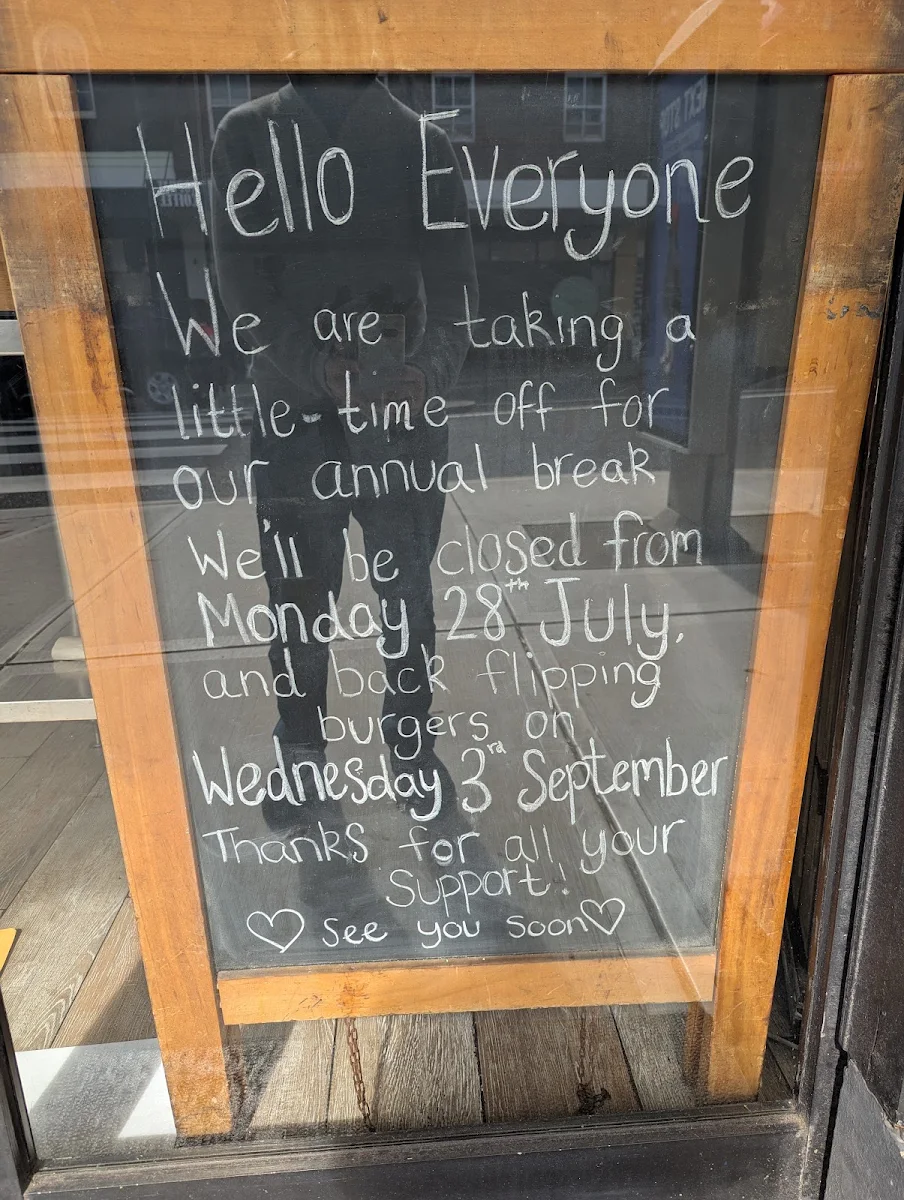 Hello Everyone
We are taking a
little-time off for
our annual break
We'll be closed from
Monday 28th July,
and back flipping
burgers on
Wednesday 3rd September
Thanks for all your
support!
♡ See you soon ♡